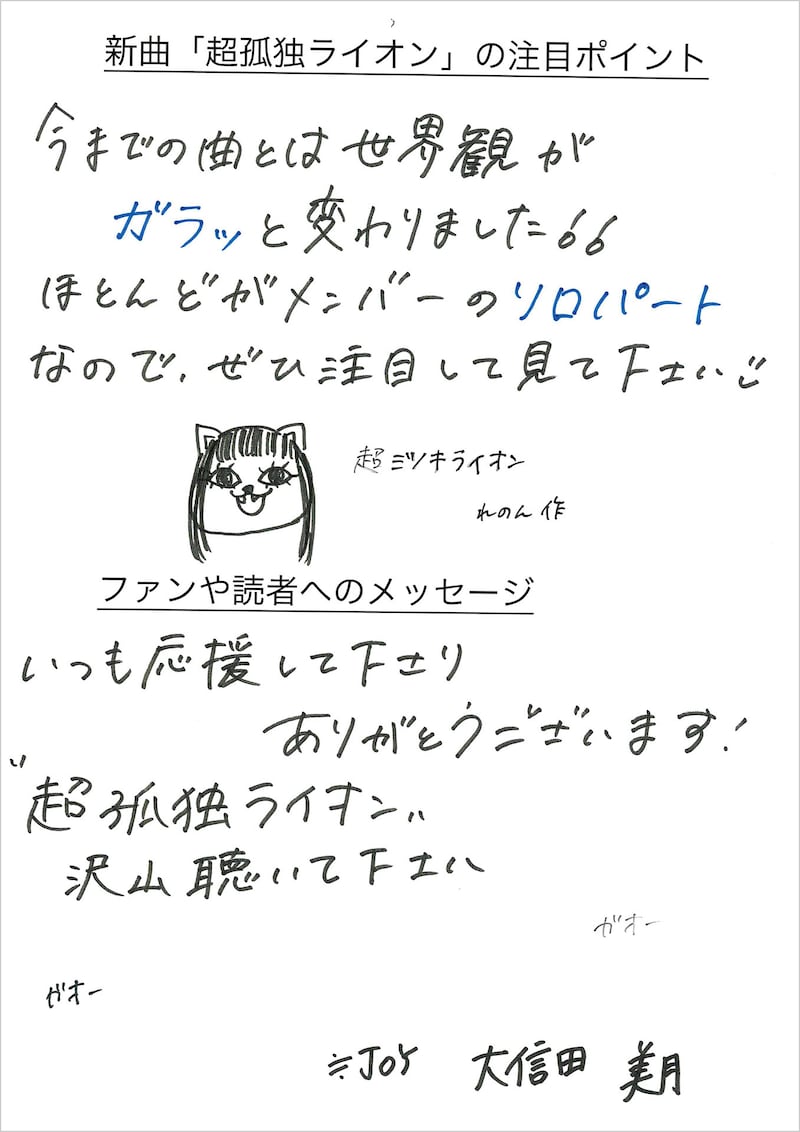 新曲「超孤独ライオン」の注目ポイント
今までの曲とは世界観が
ガラッと変わりました!!
ほとんどがメンバーのソロパート
なので、ぜひ注目して見て下さい
超ミツキライオン
れのん作
ファンや読者へのメッセージ
いつも応援して下さり
ありがとうございます!
"超孤独ライオン"
沢山聴いて下さい
ガオー
ガオー
≒JOY 大信田 美月